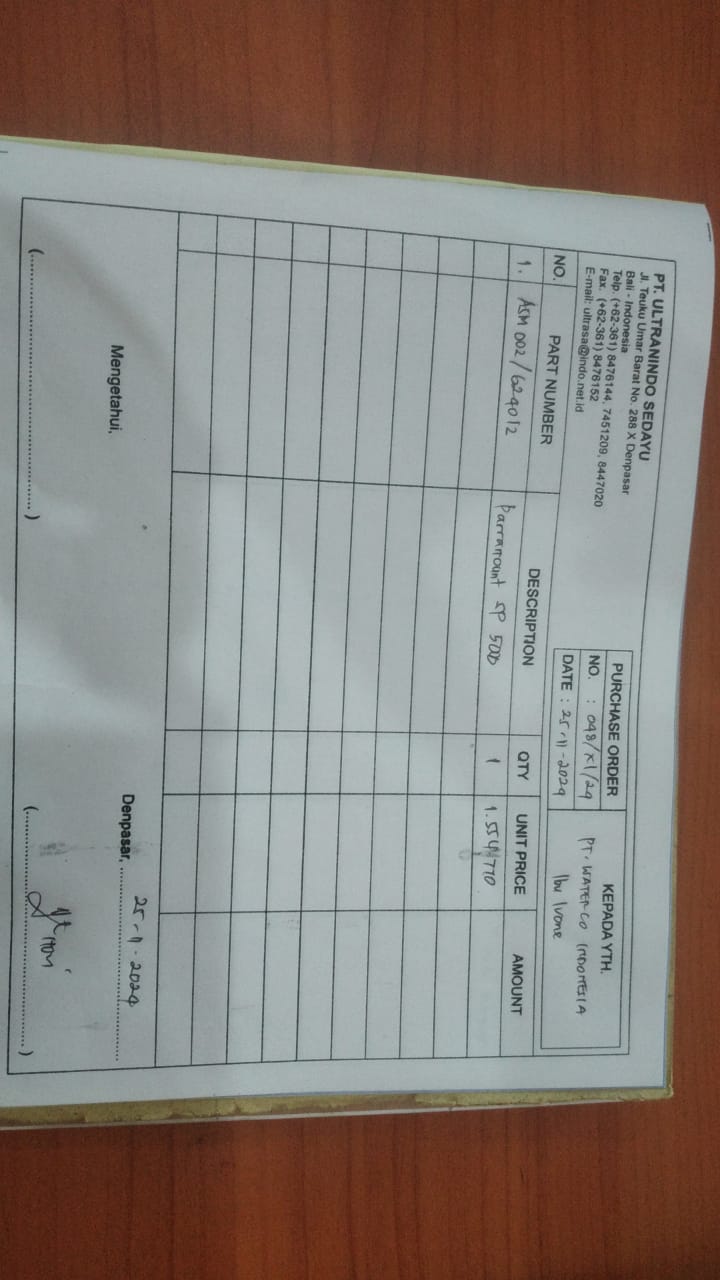 PT. ULTRANINDO SEDAYU
Jl. Teuku Umar Barat No. 288 X Denpasar
Bali - Indonesia
Telp. (+62-361) 8476144, 7451209, 8447020
Fax. (+62-361) 8476152
E-mail: ultrasa@indo.net.id
PURCHASE ORDER
NO. : 098/XI/24
DATE : 25-11-2024
KEPADA YTH.
PT. WATERCO INDONESIA
Ibu Ivone
NO. PART NUMBER DESCRIPTION QTY UNIT PRICE AMOUNT
1. ASM 002/624012 Parramount SP 500 1 1.554.770
Mengetahui, Denpasar, 25-11-2024
(..............................) (..............................)